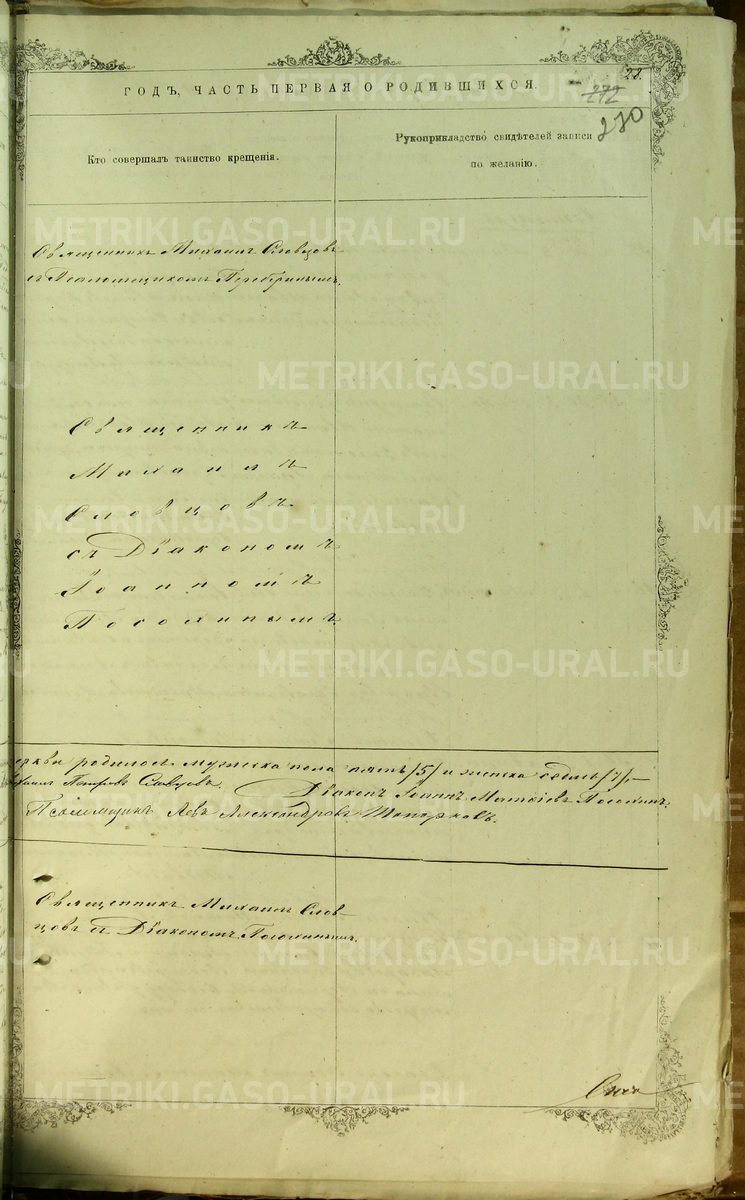 28.
ГОДЪ, ЧАСТЬ ПЕРВАЯ О РОДИВШИХСЯ.
272
270
Кто совершалъ таинство крещенія.
Рукоприкладство свидѣтелей записи
по желанію.
Священникъ Михаилъ Словцовъ
съ Псаломщикомъ
Священникъ
Михаилъ
Словцовъ
съ Діакономъ
Іоанномъ
Посохинымъ
родилось мужеска пола пять /5/ и женска семь /7/.
Петровъ Словцовъ. Діаконъ Іоаннъ Посохинъ.
Псаломщикъ Левъ Александровъ Топорковъ.
Священникъ Михаилъ Слов-
цовъ съ Діакономъ Посохинымъ.
METRIKI.GASO-URAL.RU